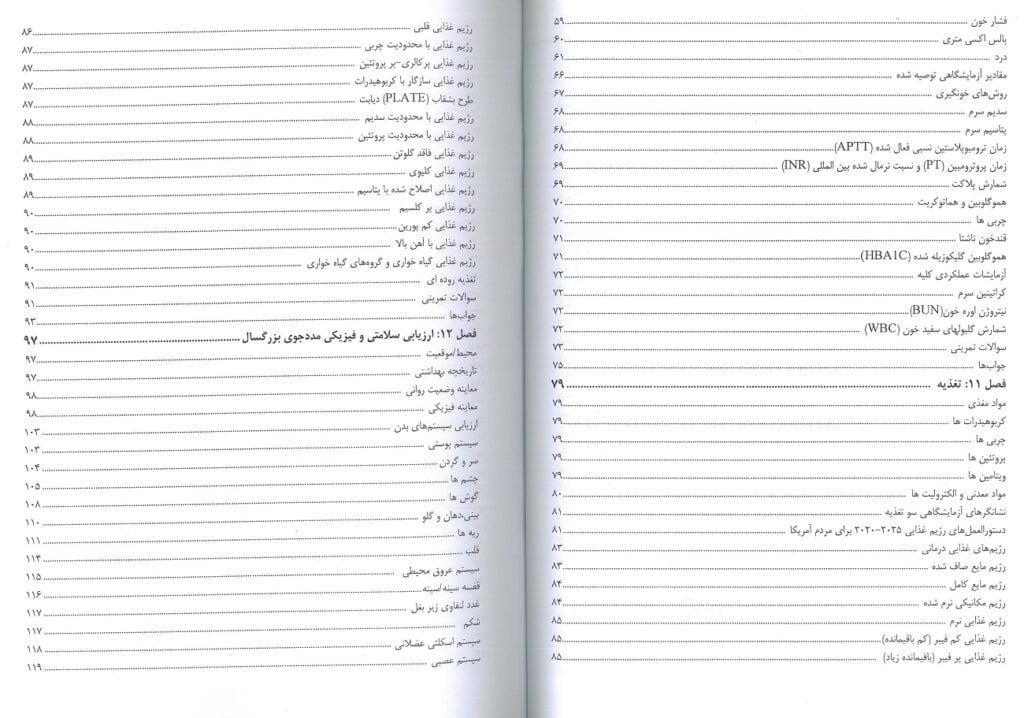 فشار خون ........ ۵۹
پالس اکسی متری ........ ۶۰
درد ........ ۶۱
مقادیر آزمایشگاهی توصیه شده ........ ۶۶
روش‌های خونگیری ........ ۶۷
سدیم سرم ........ ۶۸
پتاسیم سرم ........ ۶۸
زمان ترومبوپلاستین نسبی فعال شده (APTT) ........ ۶۸
زمان پروترومبین (PT) و نسبت نرمال شده بین المللی (INR) ........ ۶۹
شمارش پلاکت ........ ۶۹
هموگلوبین و هماتوکریت ........ ۷۰
چربی ها ........ ۷۰
قندخون ناشتا ........ ۷۱
هموگلوبین گلیکوزیله شده (HBA1C) ........ ۷۱
آزمایشات عملکردی کلیه ........ ۷۲
کراتینین سرم ........ ۷۲
نیتروژن اوره خون(BUN) ........ ۷۲
شمارش گلبولهای سفید خون (WBC) ........ ۷۲
سوالات تمرینی ........ ۷۳
جواب‌ها ........ ۷۵
فصل ۱۱: تغذیه ........ ۷۹
مواد مغذی ........ ۷۹
کربوهیدرات ها ........ ۷۹
چربی ها ........ ۷۹
پروتئین ها ........ ۷۹
ویتامین ها ........ ۷۹
مواد معدنی و الکترولیت ها ........ ۸۰
نشانگرهای آزمایشگاهی سو تغذیه ........ ۸۱
دستورالعمل‌های رژیم غذایی ۲۰۲۵-۲۰۲۰ برای مردم آمریکا ........ ۸۱
رژیم‌های غذایی درمانی ........ ۸۳
رژیم مایع صاف شده ........ ۸۳
رژیم مایع کامل ........ ۸۴
رژیم مکانیکی نرم شده ........ ۸۴
رژیم غذایی نرم ........ ۸۵
رژیم غذایی کم فیبر (کم باقیمانده) ........ ۸۵
رژیم غذایی پر فیبر (باقیمانده زیاد) ........ ۸۵
رژیم غذایی قلبی ........ ۸۶
رژیم غذایی با محدودیت چربی ........ ۸۷
رژیم غذایی پرکالری-پر پروتئین ........ ۸۷
رژیم غذایی سازگار با کربوهیدرات ........ ۸۷
طرح بشقاب (PLATE) دیابت ........ ۸۷
رژیم غذایی با محدودیت سدیم ........ ۸۸
رژیم غذایی با محدودیت پروتئین ........ ۸۸
رژیم غذایی فاقد گلوتن ........ ۸۹
رژیم غذایی کلیوی ........ ۸۹
رژیم غذایی اصلاح شده با پتاسیم ........ ۸۹
رژیم غذایی پر کلسیم ........ ۹۰
رژیم غذایی کم پورین ........ ۹۰
رژیم غذایی با آهن بالا ........ ۹۰
رژیم غذایی گیاه خواری و گروه‌های گیاه خواری ........ ۹۰
تغذیه روده ای ........ ۹۱
سوالات تمرینی ........ ۹۱
جواب‌ها ........ ۹۳
فصل ۱۲: ارزیابی سلامتی و فیزیکی مددجوی بزرگسال ........ ۹۷
محیط/موقعیت ........ ۹۷
تاریخچه بهداشتی ........ ۹۷
معاینه وضعیت روانی ........ ۹۸
معاینه فیزیکی ........ ۹۸
ارزیابی سیستم‌های بدن ........ ۱۰۳
سیستم پوستی ........ ۱۰۳
سر و گردن ........ ۱۰۴
چشم ها ........ ۱۰۵
گوش ها ........ ۱۰۸
بینی،دهان و گلو ........ ۱۱۰
ریه ها ........ ۱۱۱
قلب ........ ۱۱۴
سیستم عروق محیطی ........ ۱۱۵
قفسه سینه/سینه ........ ۱۱۶
غدد لنفاوی زیر بغل ........ ۱۱۷
شکم ........ ۱۱۷
سیستم اسکلتی عضلانی ........ ۱۱۸
سیستم عصبی ........ ۱۱۹